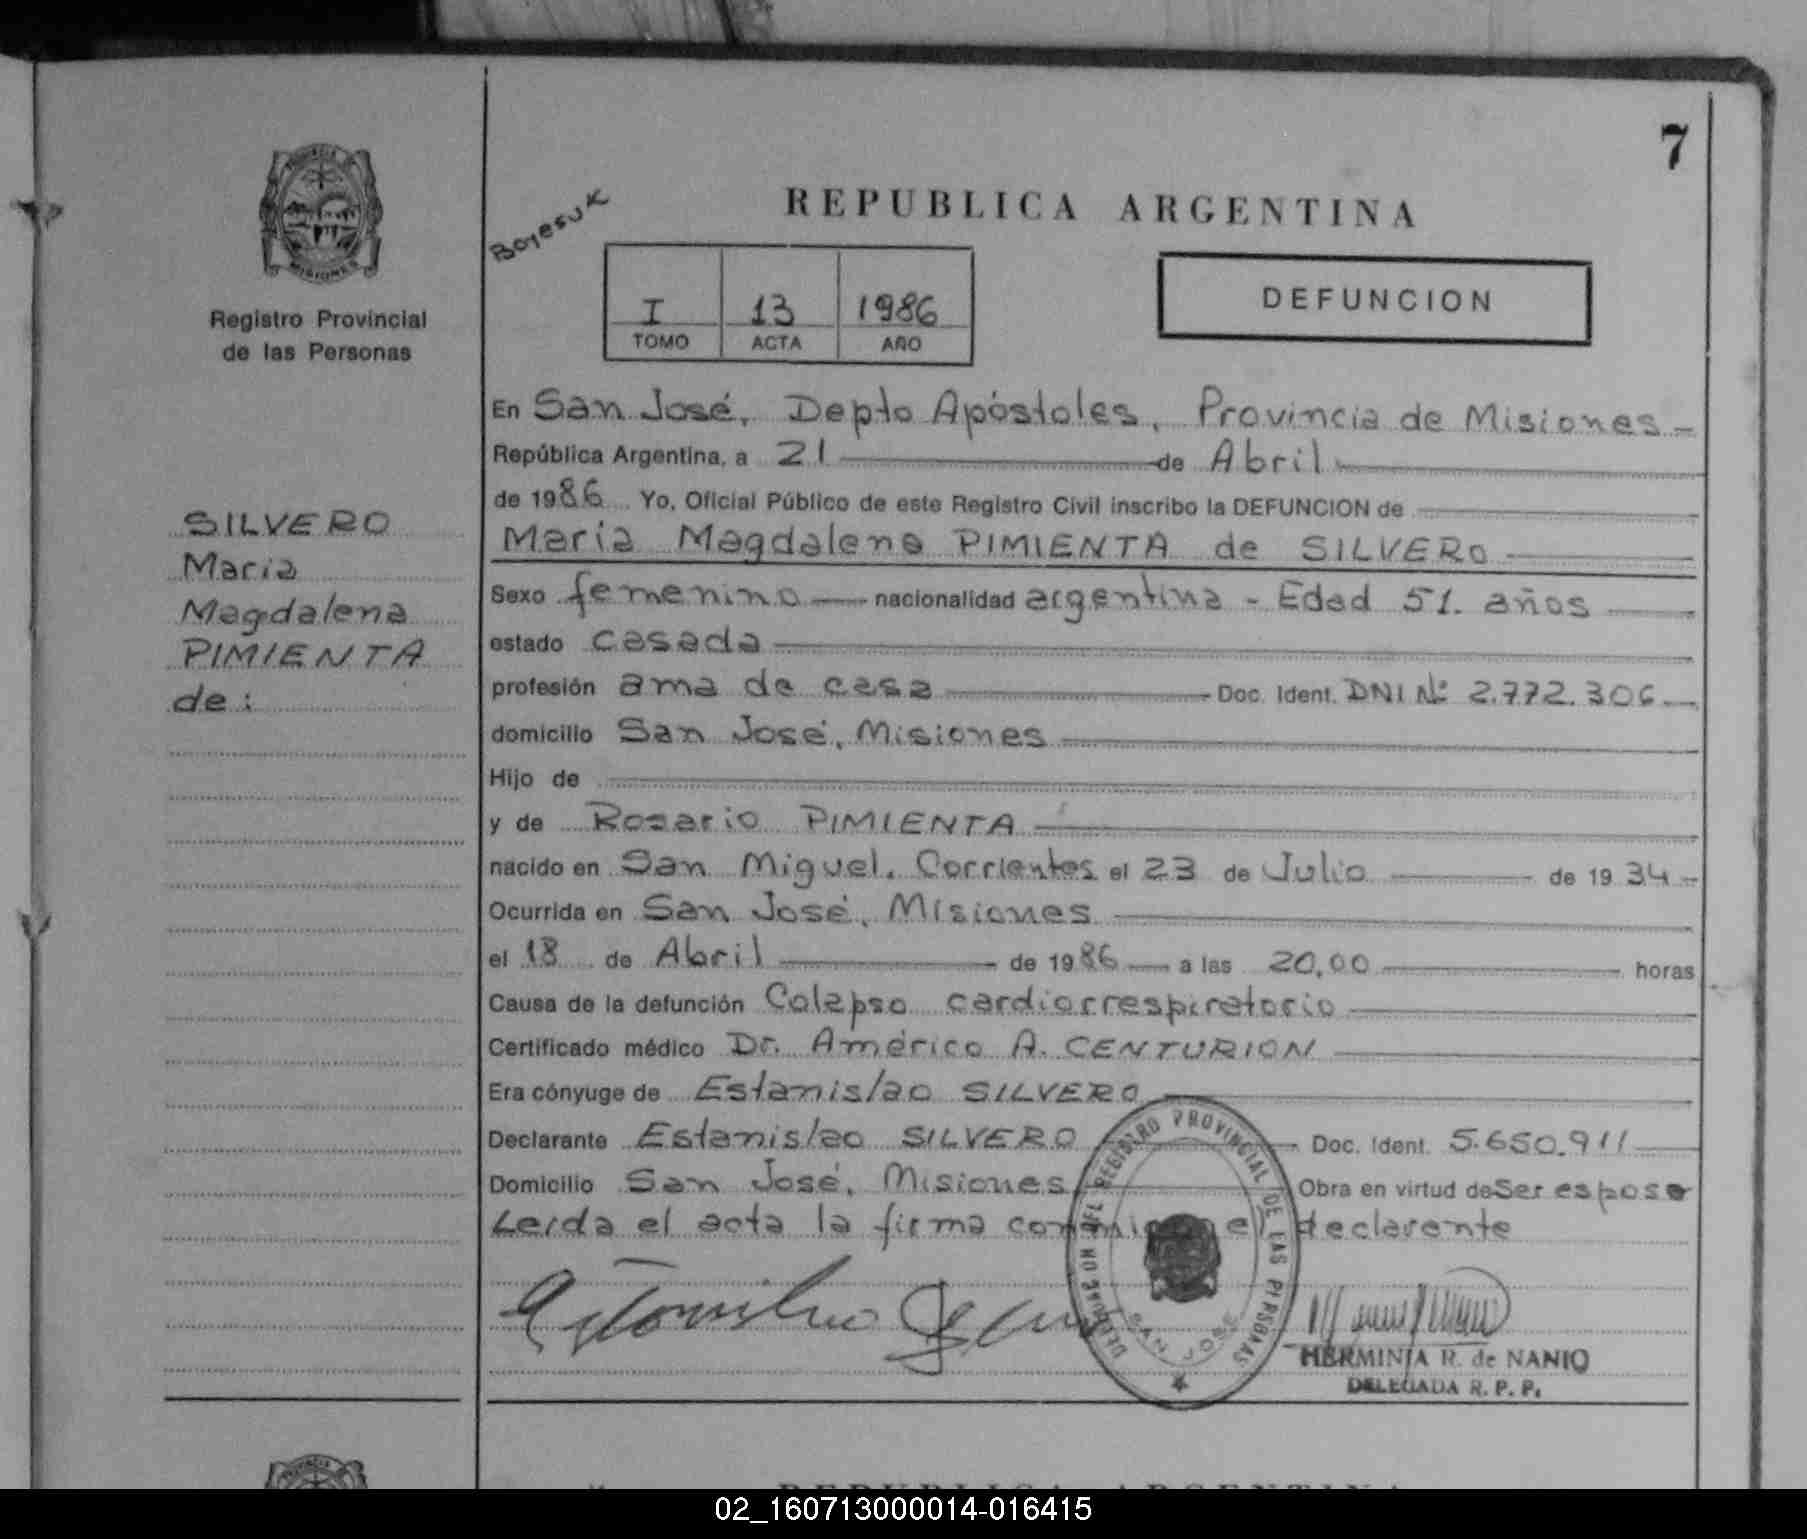 7
PROVINCIA DE
MISIONES
Registro Provincial
de las Personas
SILVERO
Maria
Magdalena
PIMIENTA
de:
REPUBLICA ARGENTINA
I 13 1986
TOMO ACTA AÑO
DEFUNCION
En San José, Depto Apóstoles, Provincia de Misiones-
República Argentina, a 21 de Abril
de 1986 Yo, Oficial Público de este Registro Civil inscribo la DEFUNCION de
María Magdalena PIMIENTA de SILVERO
Sexo femenino nacionalidad argentina - Edad 51. años
estado casada
profesión ama de casa Doc. Ident. DNI Nº 2.772.306
domicilio San José, Misiones
Hijo de
y de Rosario PIMIENTA
nacido en San Miguel, Corrientes el 23 de Julio de 1934-
Ocurrida en San José, Misiones
el 18 de Abril de 1986 a las 20,00 horas
Causa de la defunción Colapso cardiorrespiratorio
Certificado médico Dr. Américo A. CENTURION
Era cónyuge de Estanislao SILVERO
Declarante Estanislao SILVERO Doc. Ident. 5.650.911
Domicilio San José, Misiones Obra en virtud de Ser esposo
Leída el acta la firma conmigo el declarante
DELEGACION DEL REGISTRO PROVINCIAL DE LAS PERSONAS
SAN JOSE
HERMINIA R. de NANIO
DELEGADA R. P. P.
PROVINCIA
REPUBLICA ARGENTINA
02_160713000014-016415